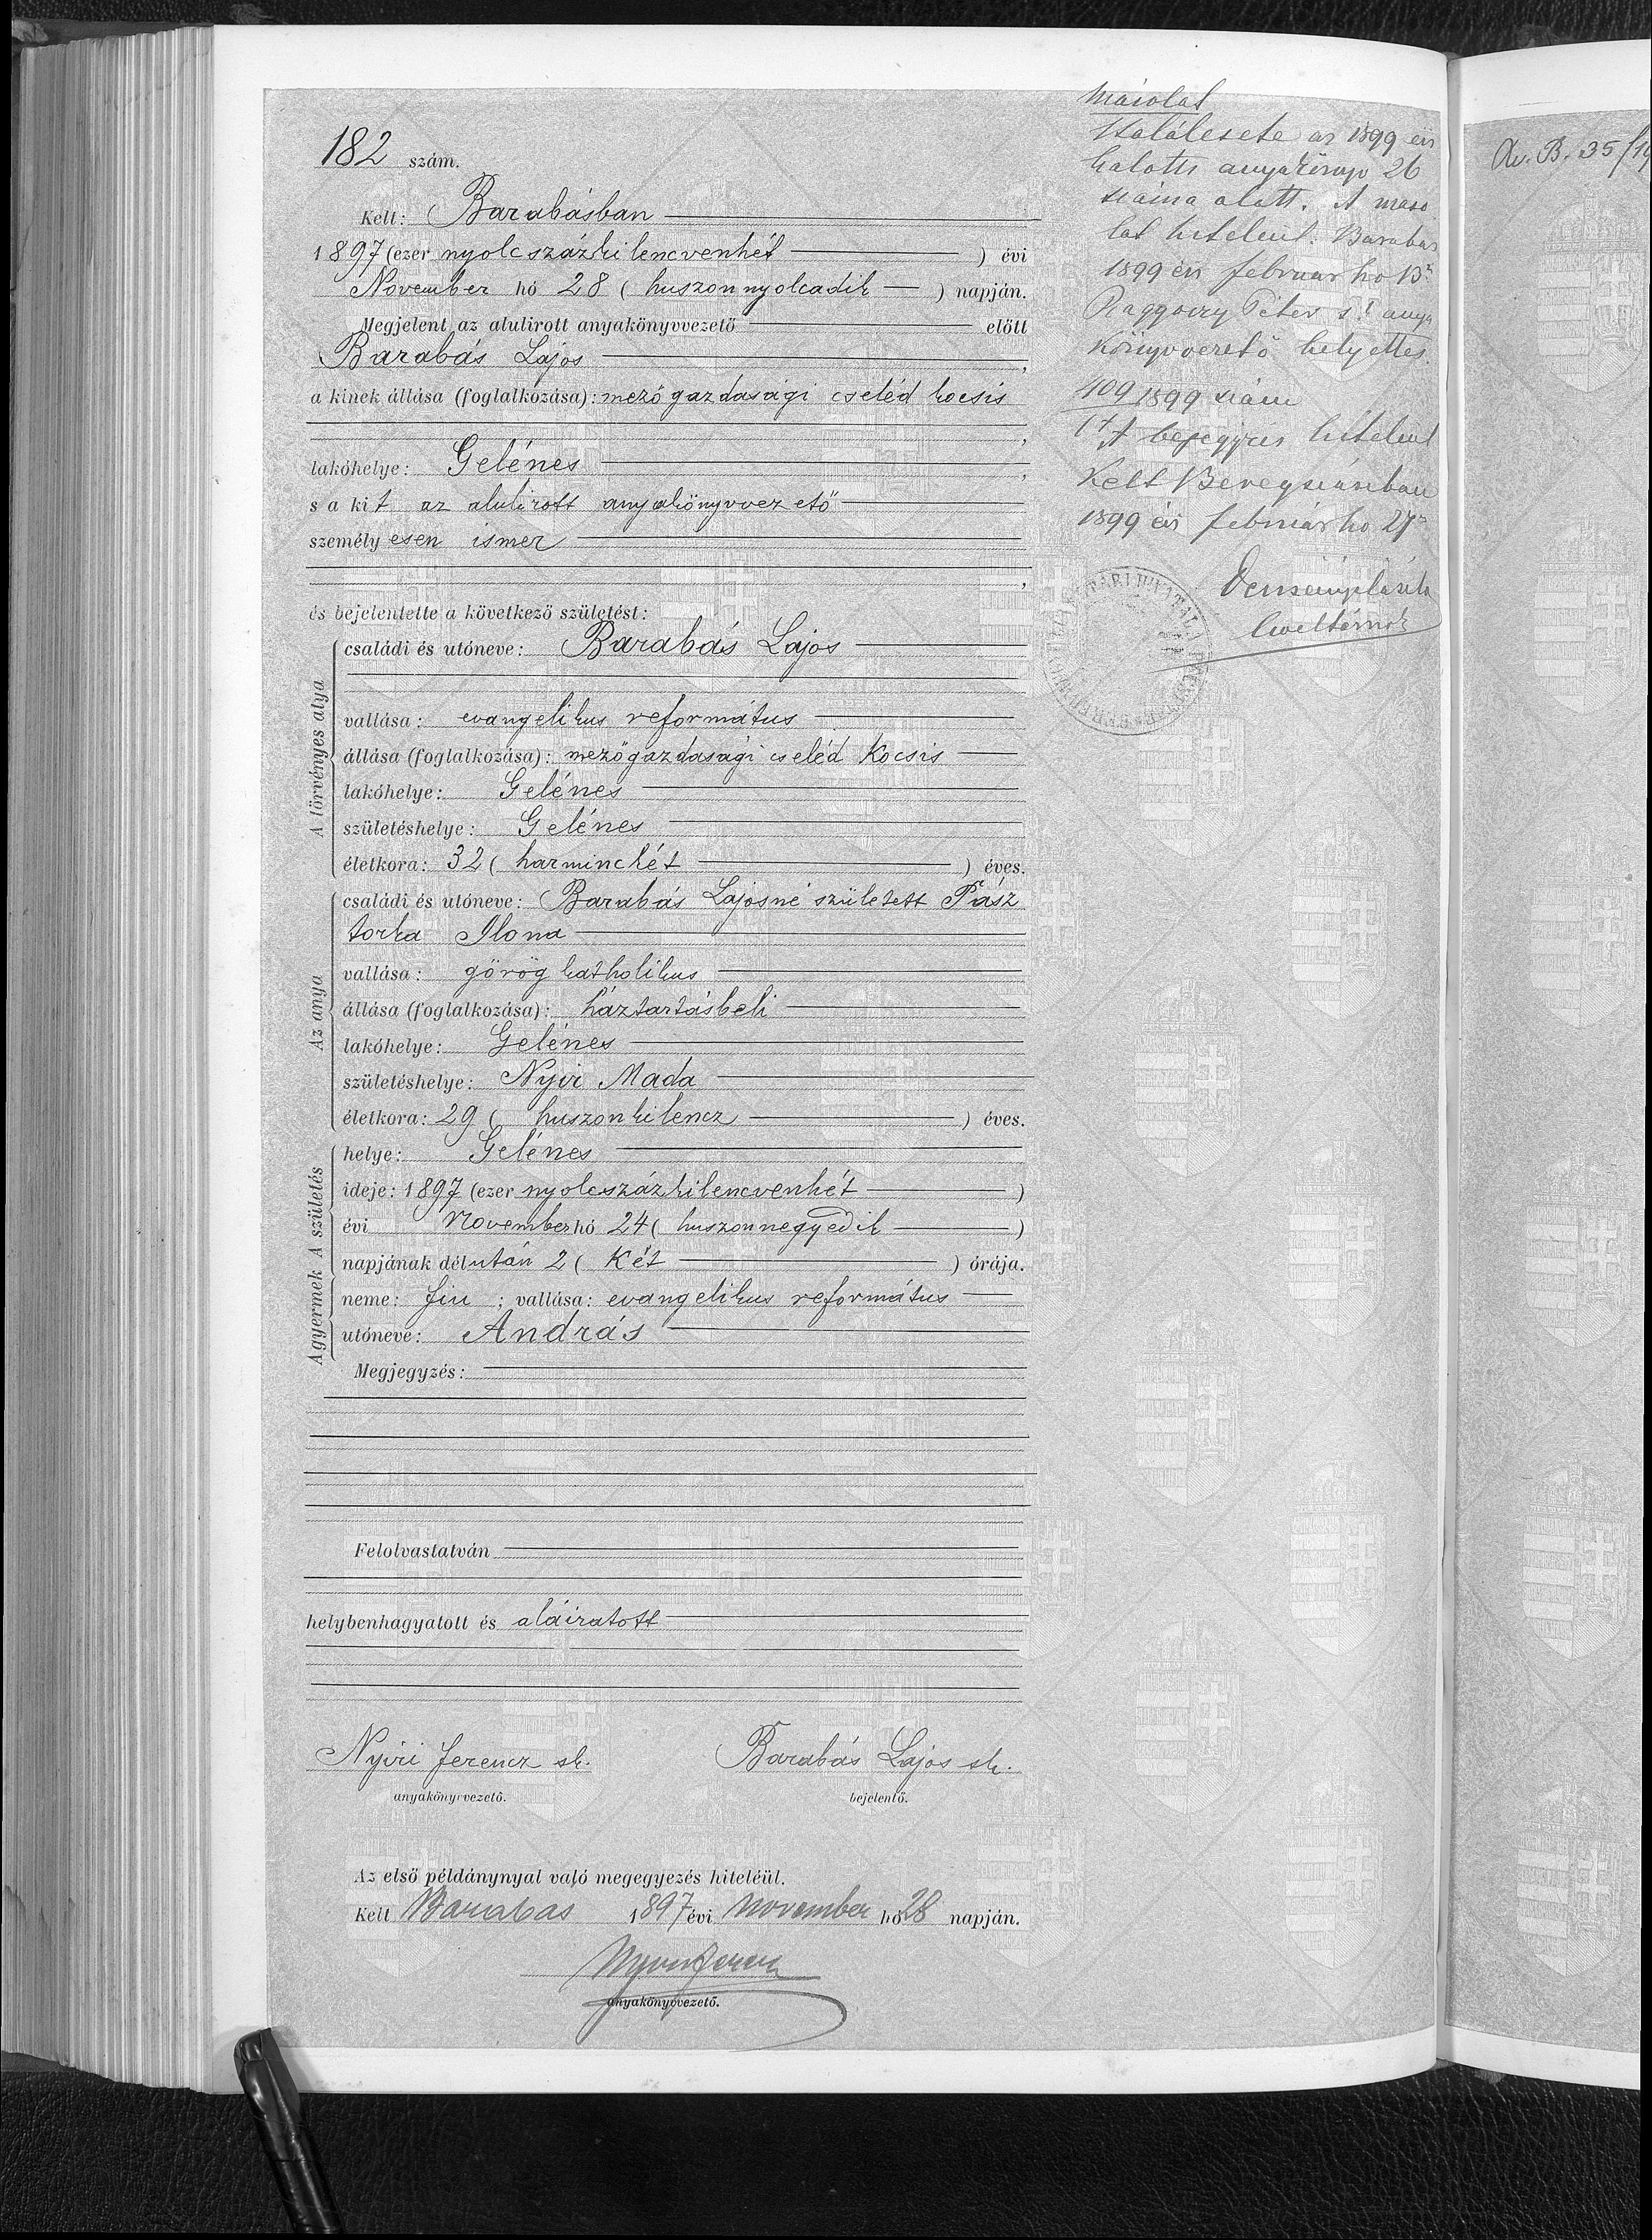 182 szám.
Kelt: Barabásban
1897 (ezer nyolcszázkilencvenhét ) évi
November hó 28 ( huszonnyolcadik ) napján.
Megjelent az alulirott anyakönyvvezető előtt
Barabás Lajos ,
a kinek állása (foglalkozása): mezőgazdasági cseléd kocsis
,
lakóhelye: Gelénes ,
s a kit az alulirott anyakönyvvezető
személyesen ismer
,
és bejelentette a következő születést:
A törvényes atya
családi és utóneve: Barabás Lajos
vallása: evangelikus református
állása (foglalkozása): mezőgazdasági cseléd Kocsis
lakóhelye: Gelénes
születéshelye: Gelénes
életkora: 32 ( harminckét ) éves.
Az anya
családi és utóneve: Barabás Lajosné született Pász
torka Ilona
vallása: görög katholikus
állása (foglalkozása): háztartásbeli
lakóhelye: Gelénes
születéshelye: Nyir Mada
életkora: 29 ( huszonkilencz ) éves.
A születés
helye: Gelénes
ideje: 1897 (ezer nyolcszázkilencvenhét )
évi November hó 24 ( huszonnegyedik )
napjának délután 2 ( Két ) órája.
A gyermek
neme: fiu ; vallása: evangelikus református
utóneve: András
Megjegyzés:
Felolvastatván
helybenhagyatott és aláiratott
Nyiri Ferencz sk. Barabás Lajos sk.
anyakönyvvezető. bejelentő.
Az első példánynyal való megegyezés hiteléül.
Kelt Barabas 1897 évi November hó 28 napján.
Nyiri Ferencz
anyakönyvvezető.
Másolat
Halálesete az 1899 évi
halotti anyakönyv 26
száma alatt. A máso
lat hiteleül. Barabás
1899 évi február hó 13
Péter s.k. anya
könyvvezető helyettes.
409/1899 szám
A bejegyzés hiteleül
Kelt Beregszászban
1899 évi február hó 27
levéltárnok
Av. B. 35/19